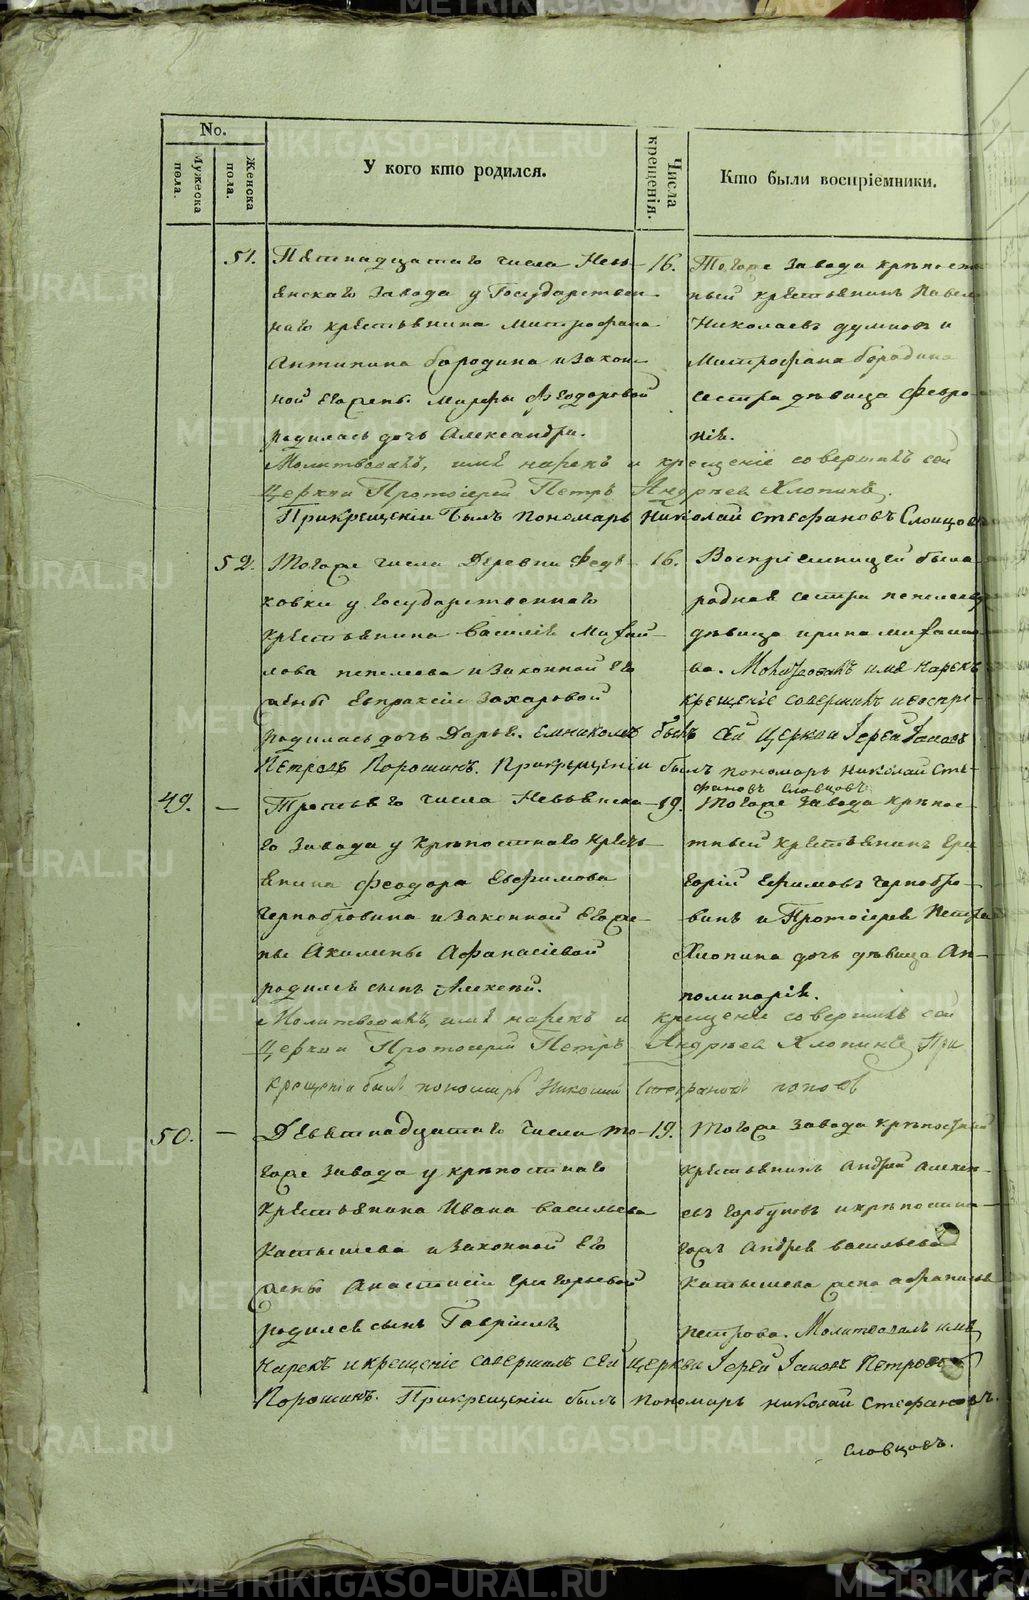 No.
Мужеска пола.
Женска пола.
У кого кто родился.
Числа крещенія.
Кто были воспріемники.
51. Пятнадцатаго числа Невь-
янскаго завода у Государствен-
наго крестьянина Митрофана
Антипина бородина и закон-
ной его жены Марфы Феодоровой
родилась дочь Александра.
16. Тогоже завода крѣпост-
ный крестьянинъ Павел
Николаевъ думновъ и
Митрофана бородина
сестра дѣвица Февро-
нія.
Молитвовалъ, имя нарекъ и крещеніе совершилъ сей
Церкви Протоіерей Петръ Андрѣевъ Хлопинъ.
При крещеніи былъ пономарь Николай Стефановъ Словцовъ
52. Тогоже числа Деревни Федь-
ковки у государственнаго
крестьянина Василья Михай-
лова пепелева и законной его
жены Евпраксіи Захаровой
родилась дочь Дарья.
16. Воспріемницей была
родная сестра пепелева
дѣвица ирина михаило-
ва. Молитвовалъ имя нарекъ
крещеніе совершилъ и воспри-
емникомъ былъ сей Церкви Іерей Іаковъ
Петровъ Порошинъ. При крещеніи былъ пономарь Николай Сте-
фановъ Словцовъ
49. — Третьяго числа Невьянска-
го завода у крѣпостнаго крест-
янина Феодора Евфимова
Чернобровина и законной его же-
ны Акилины Афанасіевой
родился сынъ Алексей.
19. Тогоже завода крѣпос-
тный крестьянинъ Гри
горій Ефимовъ Чернобро-
винъ и Протоіерея Петра
Хлопина дочь дѣвица Ап-
полинарія.
Молитвовалъ, имя нарекъ и крещеніе совершилъ сей
Церкви Протоіерей Петръ Андрѣевъ Хлопинъ При
крещеніи былъ пономарь Николай Стефановъ попов
50. — Девятнадцатаго числа то-
гоже завода у крѣпостнаго
крестьянина Ивана Васильева
Катышева и законной его
жены Анастасіи Григорьевой
родился сынъ Гавріилъ
19. Тогоже завода крѣпостный
крестьянинъ Андрей Алексе-
евъ Горбуновъ и крѣпостна-
гожъ Андрея Васильева
Катышева жена афанасья
петрова. Молитвовалъ имя
нарекъ и крещеніе совершилъ сей Церкви Іерей Іаковъ Петровъ
Порошинъ. При крещеніи былъ пономарь николай Стефановъ.
Словцовъ.